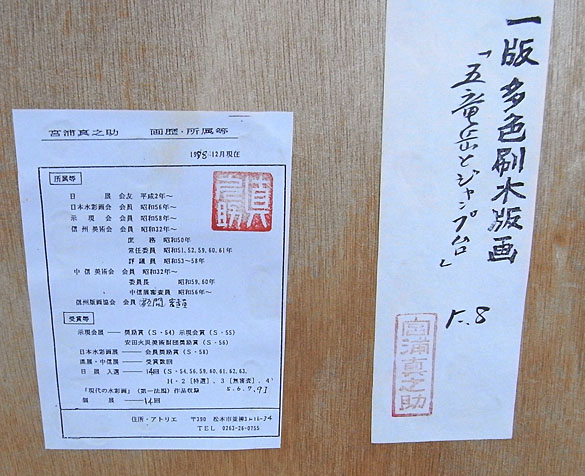 宮浦真之助　画歴・所属等
1998・12月現在
所属等
日　展　会友　平成2年～
日本水彩画会　会員　昭和56年～
示　現　会　会員　昭和58年～
信州美術会　会員　昭和32年～
庶　務　昭和50年
常任委員　昭和51,52,59,60,61年
評議員　昭和53～58年
中信美術会　会員　昭和32年～
委員長　昭和59,60年
中信展審査員　昭和56年～
信州版画協会　会員
受賞等
示現会展――奨励賞（S・54）示現会賞（S・55）
安田火災美術財団奨励賞（S・56）
日本水彩画展――会員奨励賞（S・58）
県展・中信展――受賞数回
日展入選――14回（S・54,56,59,60,61,62,63,
H・2［特選］、3［無審査］、4
5.6.7.9）
「現代の水彩画」（第一法規）作品収録
個　展――14回
住所・アトリエ　〒390　松本市並柳3-16-74
TEL　0263-26-0755
真之助
一版多色刷木版画
「五竜岳とジャンプ台」
15.8
宮浦真之助